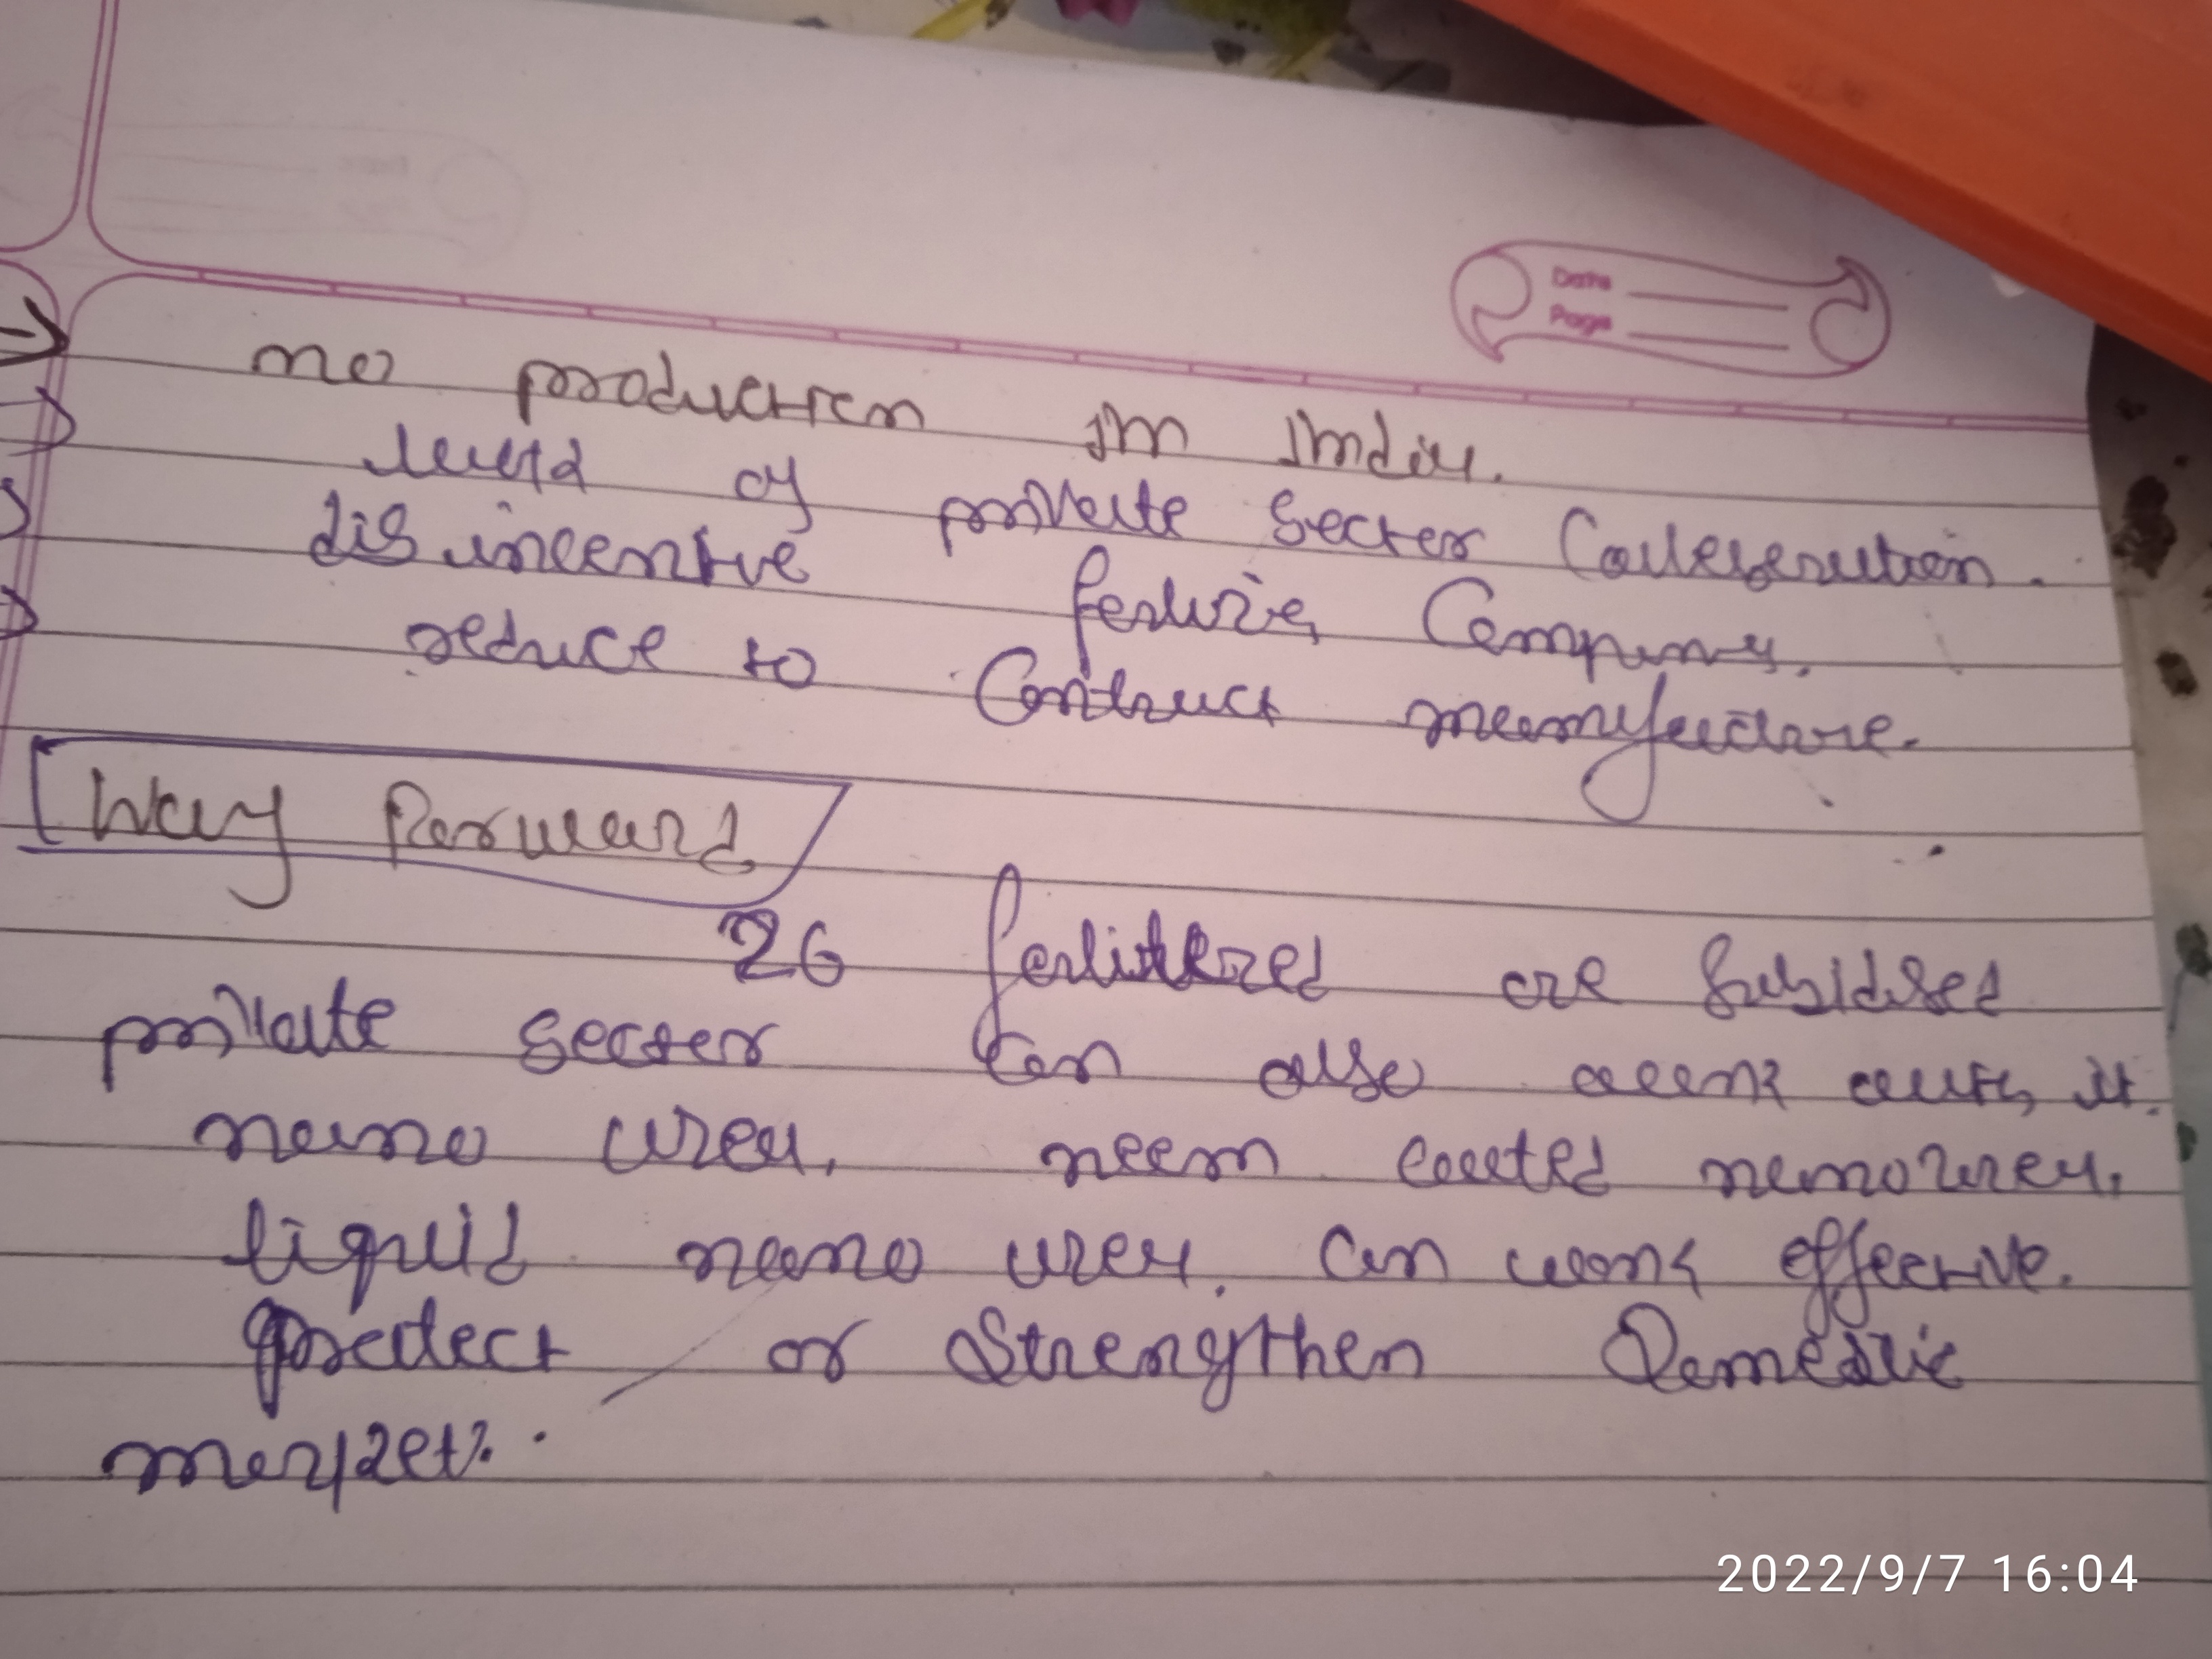 Date
Page
→ no production in India.
→ lead of private sector Collaboration.
→ disincentive foreign Company.
→ reduce to Contract manufacture.
Way Forward
26 fertilizred are subsidised
private sector can also work it.
nano urea. neem coated nano urea.
liquid nano urea. can work effective.
protect or Strengthen Domestic
market.
2022/9/7 16:04